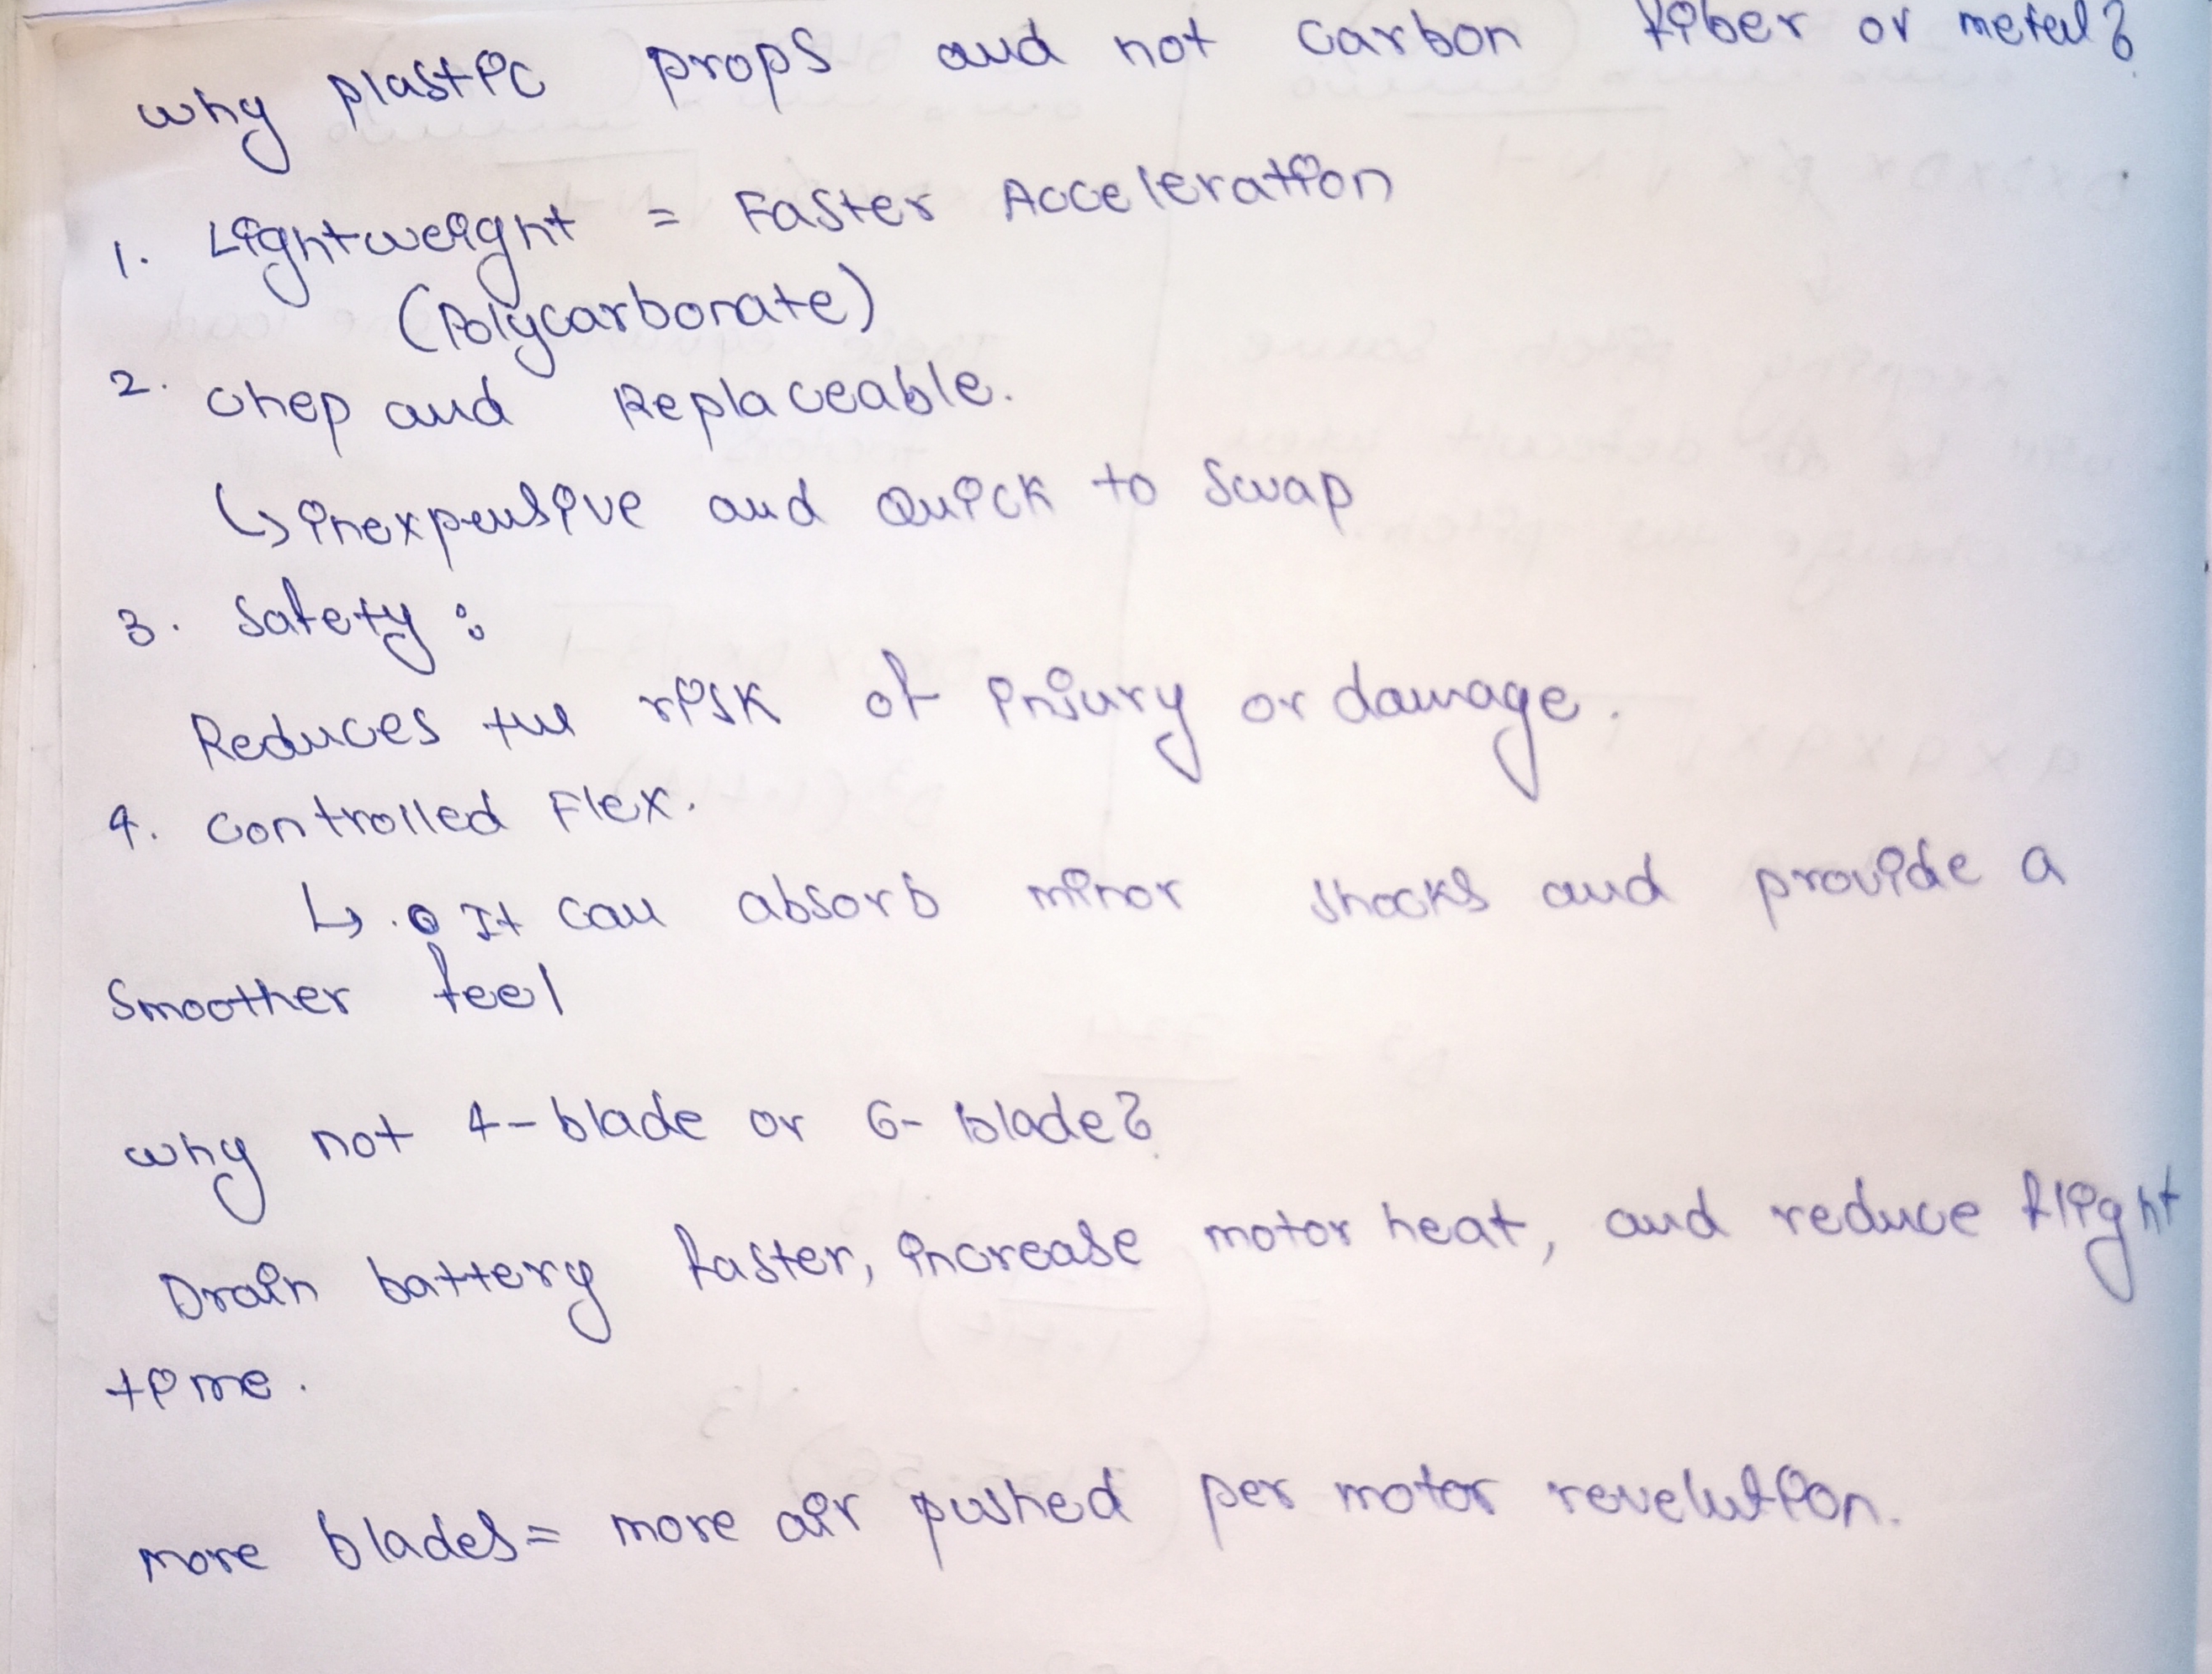 why plastic props and not carbon fiber or metal?
1. Lightweight = Faster Acceleration
(Polycarbonate)
2. chep and Replaceable.
↳ inexpensive and Quick to swap
3. Safety :
Reduces the risk of injury or damage.
4. controlled Flex.
↳ . It can absorb minor shocks and provide a
smoother feel
why not 4-blade or 6-blade?
Drain battery faster, increase motor heat, and reduce flight
time.
more blades = more air pushed per motor revelution.